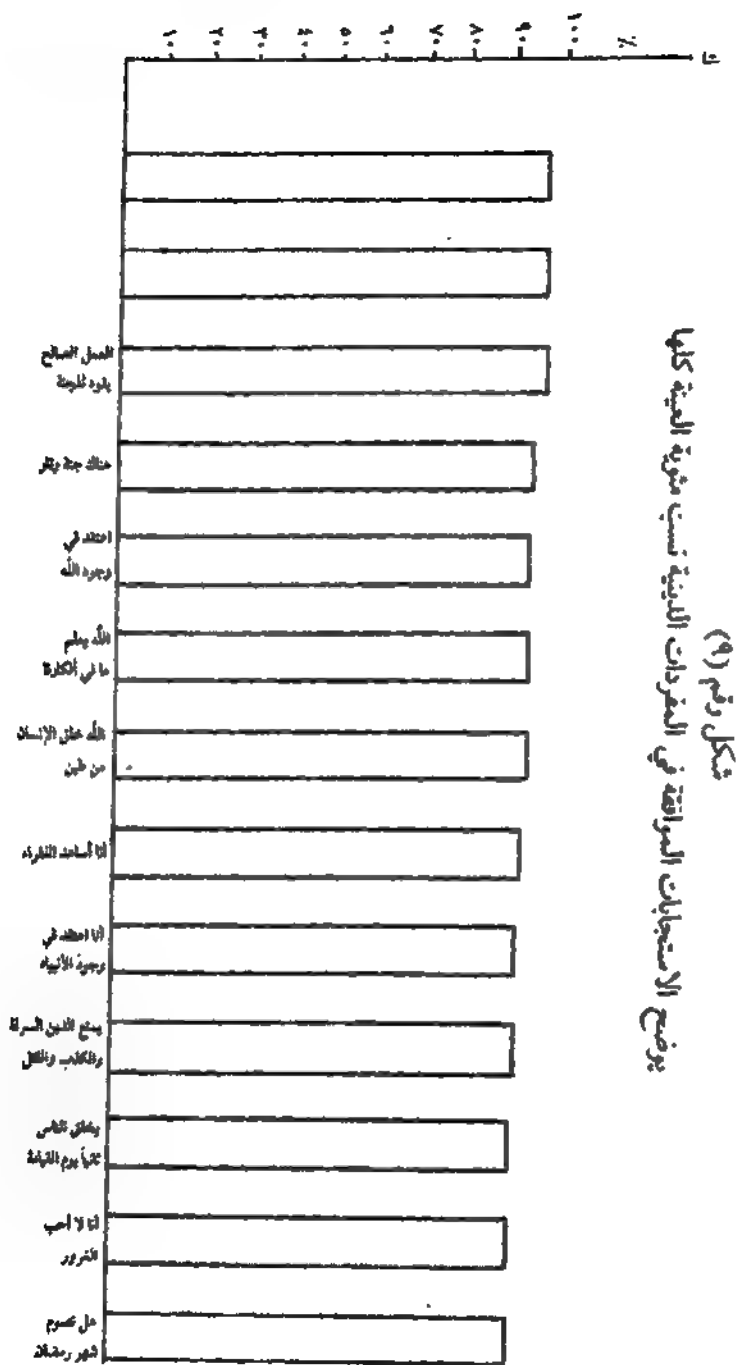 شكل رقم (٩)
يوضح الاستجابات الموافقة في المفردات الدينية نسب مئوية العينة كلها
ك
%
١٠٠
٩٠
٨٠
٧٠
٦٠
٥٠
٤٠
٣٠
٢٠
١٠
العمل الصالح
يقود للجنة
هناك جنة ونار
اعتقد في
وجود الله
الله يعلم
ما في أفكارنا
الله خلق الإنسان
من طين
أنا أساعد الفقراء
أنا اعتقد في
وجود الأنبياء
يمنع الدين السرقة
والكذب والقتل
يخلق الناس
ثانياً يوم القيامة
أنا لا أحب
الغرور
هل تصوم
شهر رمضان